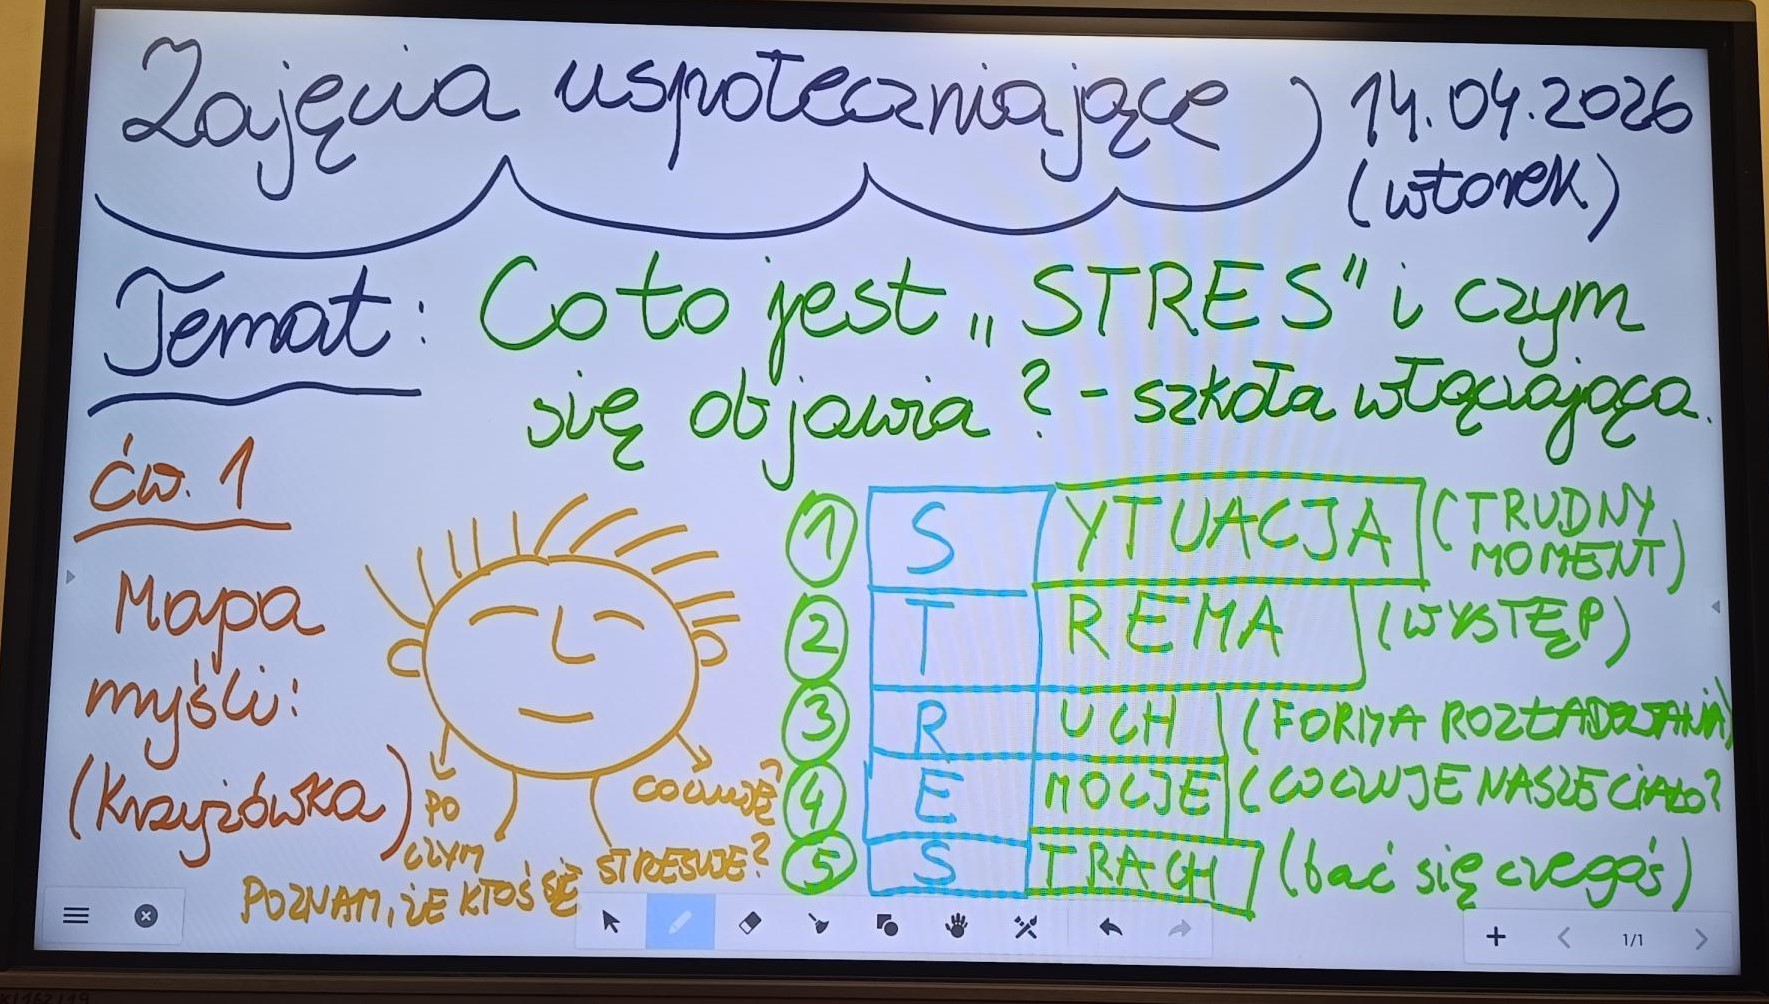 Zajęcia uspołeczniające
14.04.2026
(wtorek)
Temat: Co to jest „STRES" i czym
się objawia? - szkoła włączająca.
ćw. 1
Mapa
myśli:
(Krzyżówka)
PO
CZYM
POZNAM, ŻE KTOŚ SIĘ STRESUJE?
CO CZUJĘ?
1 SYTUACJA (TRUDNY
MOMENT)
2 TREMA (WYSTĘP)
3 RUCH (FORMA ROZŁADOWANIA)
4 EMOCJE (CO CZUJE NASZE CIAŁO?
5 STRACH (bać się czegoś)
1/1